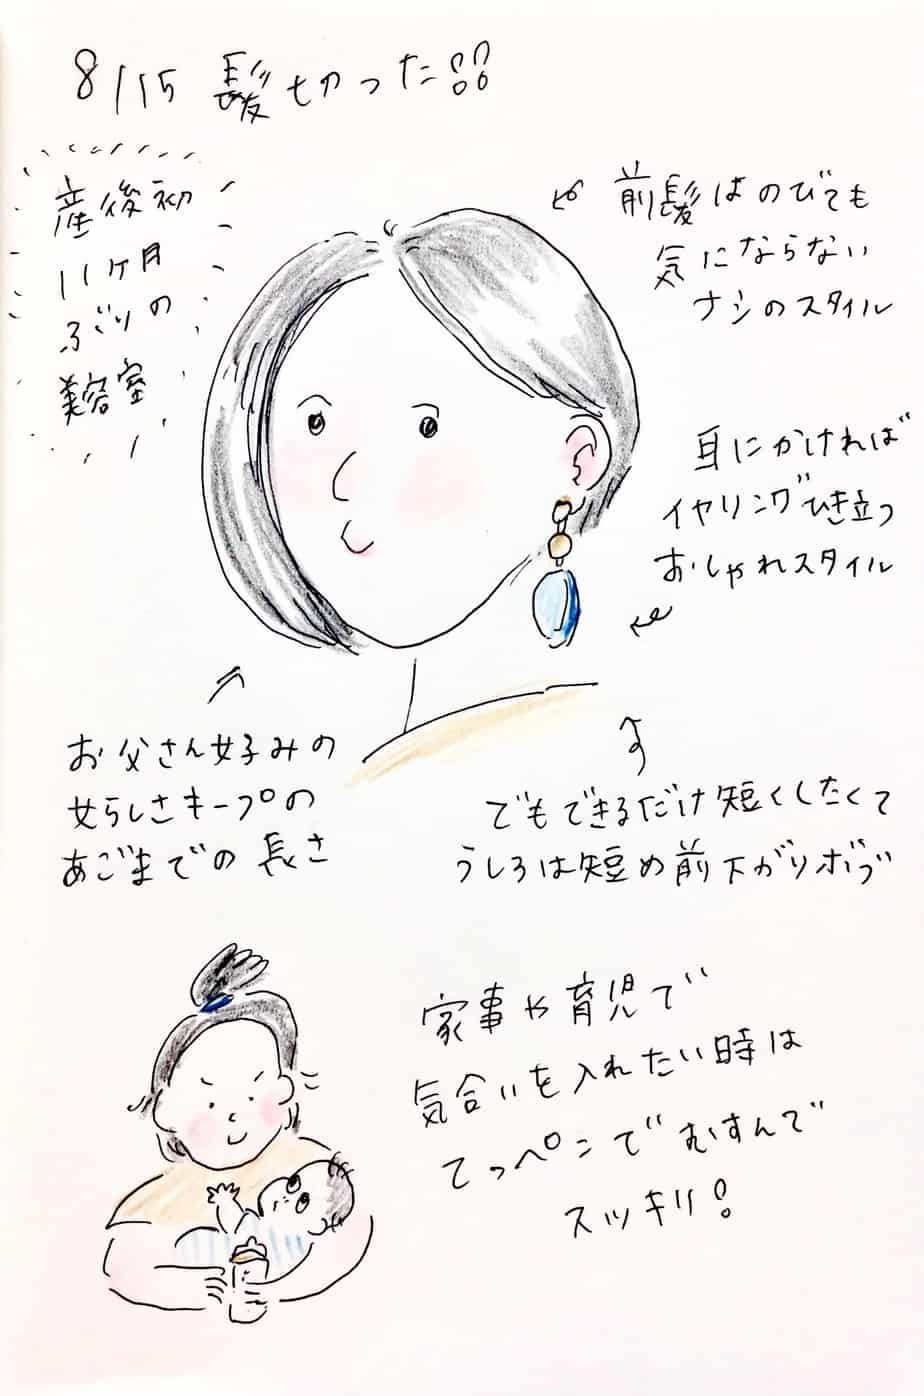 8/15 髪切った!!
産後初
11ヶ月
ぶりの
美容室
前髪はのびても
気にならない
ナシのスタイル
耳にかければ
イヤリングひき立つ
おしゃれスタイル
お父さん好みの
女らしさキープの
あごまでの長さ
でもできるだけ短くしたくて
うしろは短め前下がりボブ
家事や育児で
気合いを入れたい時は
てっぺんでむすんで
スッキリ!